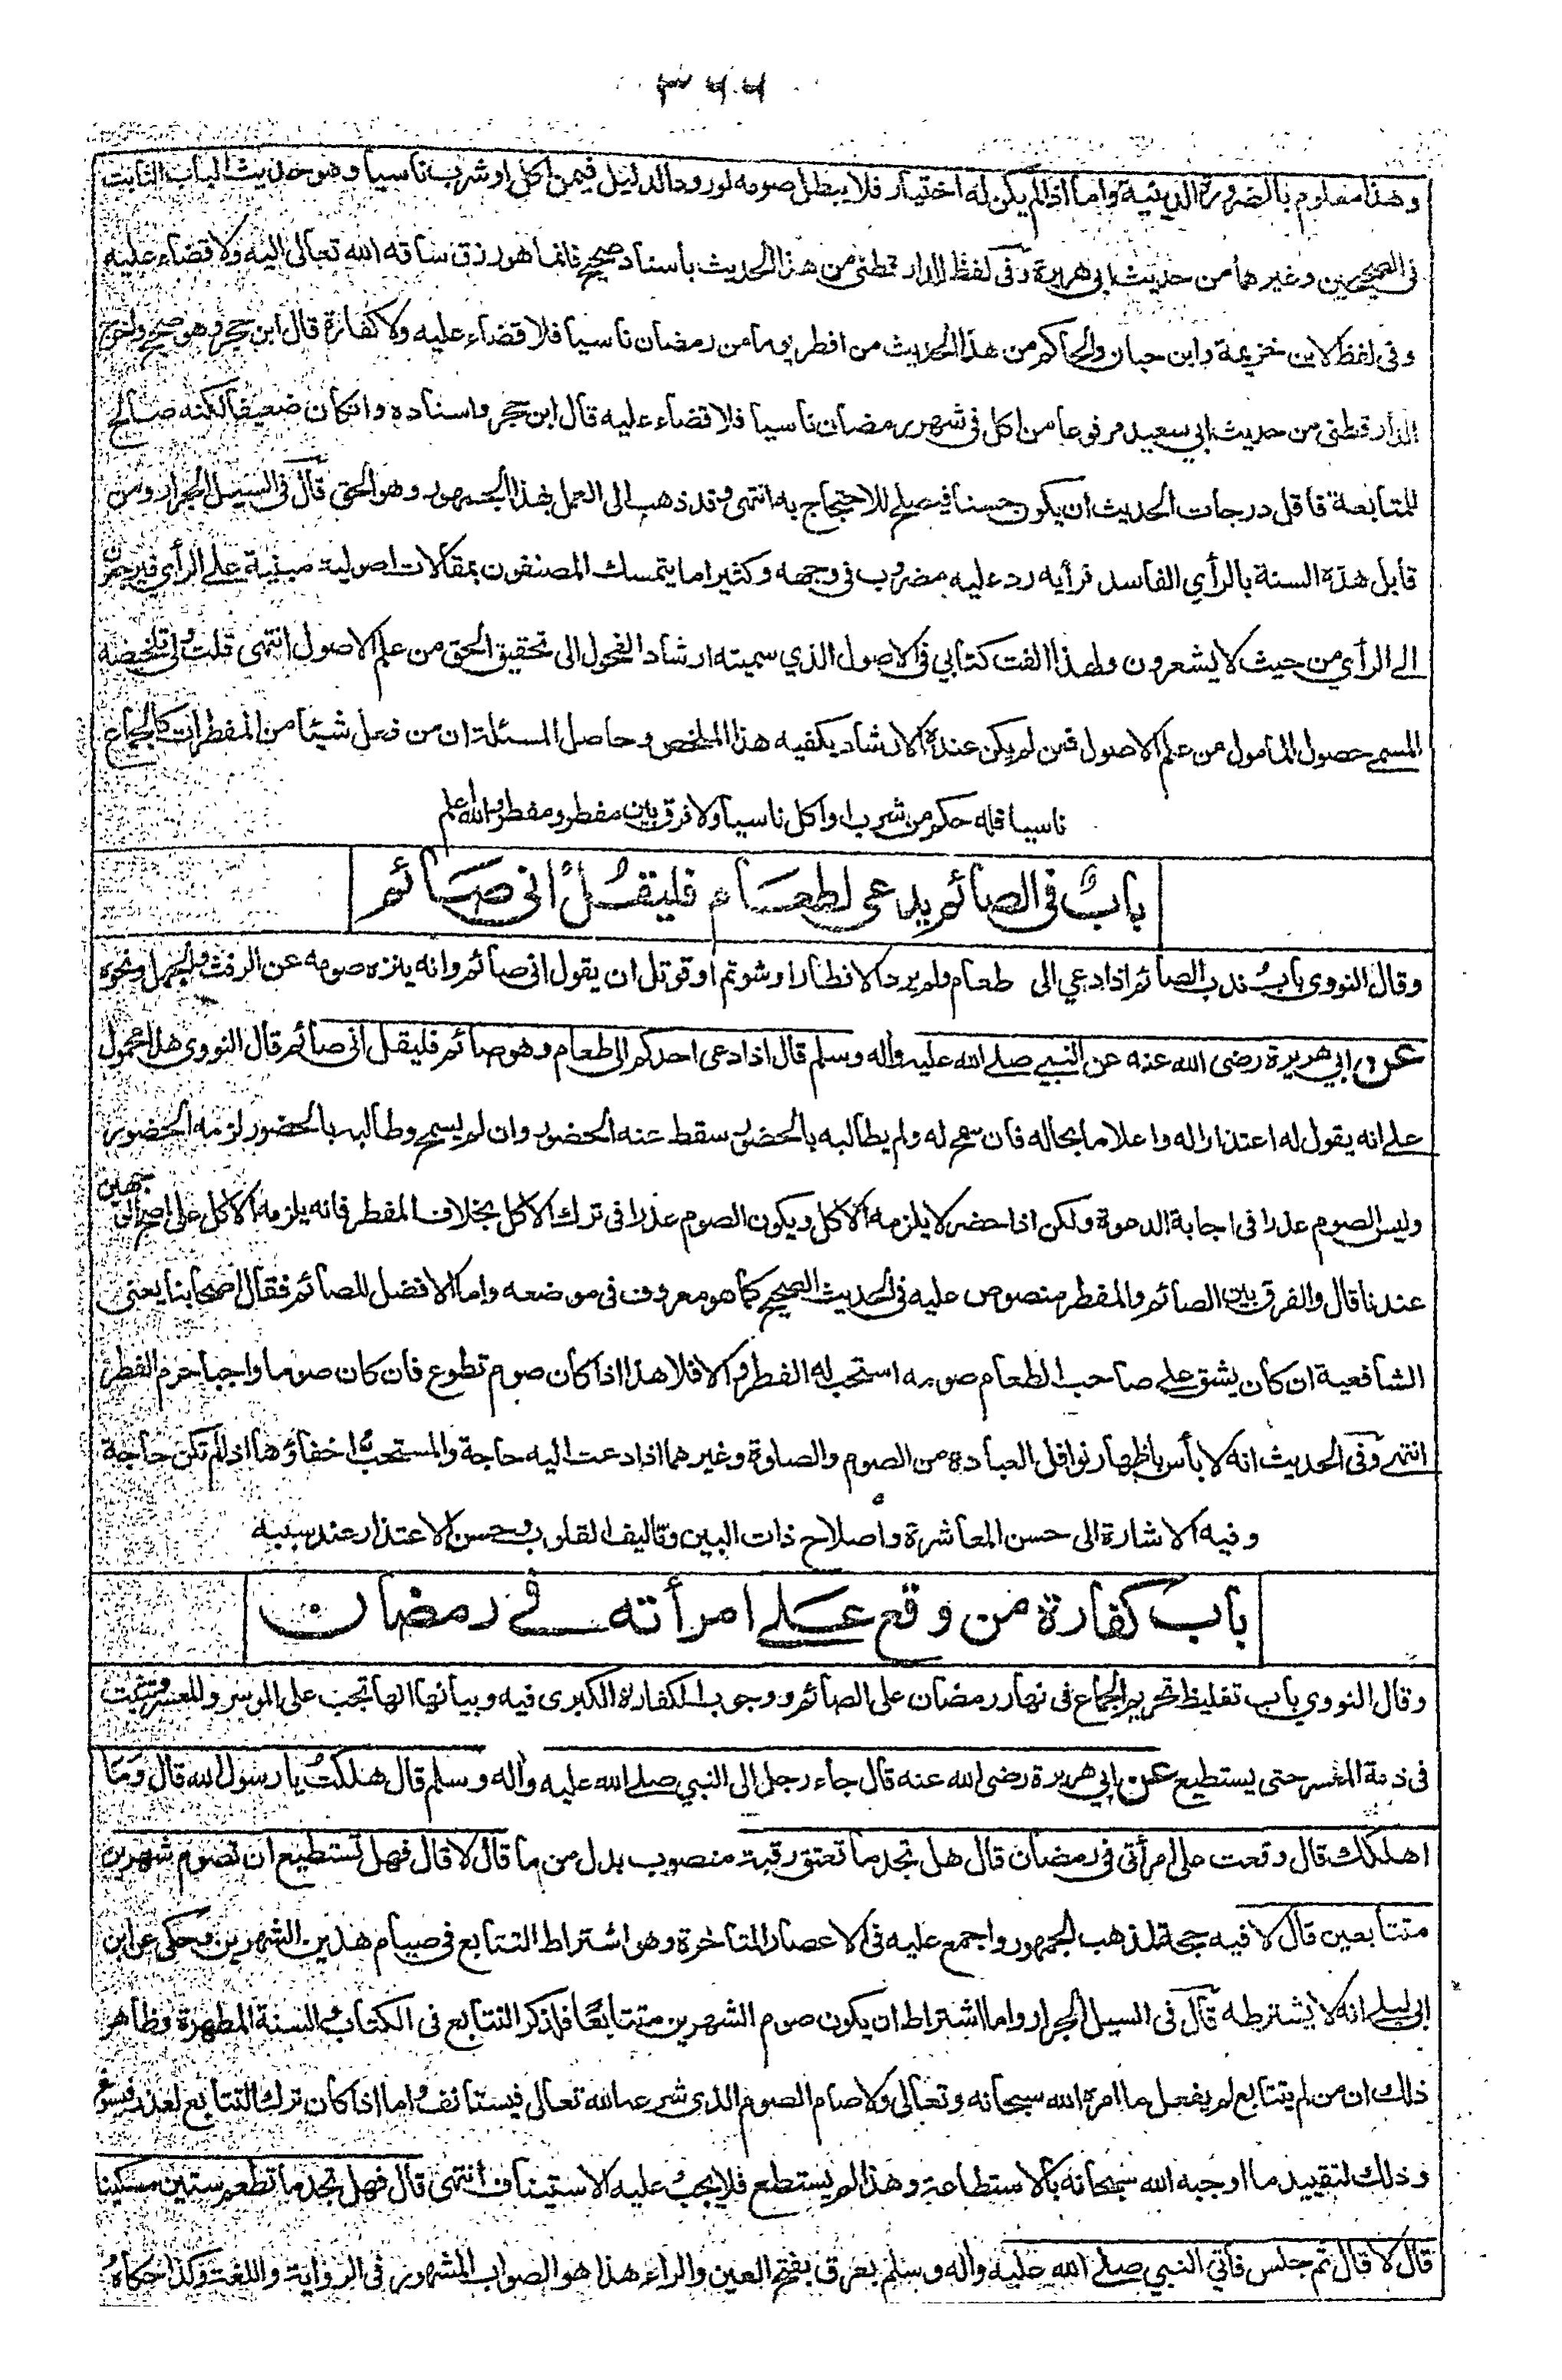 ٣٦٦
وهذا معلوم بالضرورة الدينية واما اذا لم يكن له اختيار فلا يبطل صومه لورود الدليل فيمن اكل او شرب ناسيا وهو حديث الباب الثابت
فى الصحيحين وغيرهما من حديث ابي هريرة وفى لفظ للدارقطنى من هذا الحديث بأسناد صحيح فانما هو رزق ساقه الله تعالى اليه ولا قضاء عليه
وفى لفظ لابن خزيمة وابن حبان والحاكم من هذا الحديث من افطر يوما من رمضان ناسيا فلا قضاء عليه ولا كفارة قال ابن حجر وهو صحيح واخرج
الدارقطنى من حديث ابي سعيد مرفوعا من اكل فى شهر رمضان ناسيا فلا قضاء عليه قال ابن حجر واسناده وان كان ضعيفا لكنه صالح
للمتابعة فاقل درجات الحديث ان يكون حسنا فيصلح للاحتجاج به انتهى وقد ذهب الى العمل بهذا الجمهور وهو الحق قال فى السيل الجرار ومن
قابل هذه السنة بالرأي الفاسد فرأيه رد عليه مضروب فى وجهه وكثيرا ما يتمسك المصنفون بمقالات اصولية مبنية على الرأي فيرجعون
الى الرأي من حيث لا يشعرون ولهذا الفت كتابي فى الاصول الذي سميته ارشاد الفحول الى تحقيق الحق من علم الاصول انتهى قلت ولى تلخيصه
المسمى حصول المأمول من علم الاصول فمن لم يكن عنده الارشاد يكفيه هذا الملخص وحاصل المسئلة ان من فعل شيئا من المفطرات كالجماع
ناسيا فله حكم من شرب او اكل ناسيا ولا فرق بين مفطر ومفطر والله اعلم
باب فى الصائم يدعى لطعام فليقل انى صائم
وقال النووى باب ندب الصائم اذا دعي الى طعام ولم يرد الافطار او شوتم او قوتل ان يقول انى صائم وانه ينزه صومه عن الرفث والجهل ونحوه
عن ابي هريرة رضى الله عنه عن النبي صلى الله عليه واله وسلم قال اذا دعى احدكم الى طعام وهو صائم فليقل انى صائم قال النووى هذا محمول
على انه يقول له اعتذارا له واعلاما بحاله فان سمح له ولم يطالبه بالحضور سقط عنه الحضور وان لم يسمح وطالبه بالحضور لزمه الحضور
وليس الصوم عذرا فى اجابة الدعوة ولكن اذا حضر لا يلزمه الاكل ويكون الصوم عذرا فى ترك الاكل بخلاف المفطر فانه يلزمه الاكل على اصح الوجهين
عندنا قال والفرق بين الصائم والمفطر منصوص عليه فى الحديث الصحيح كما هو معروف فى موضعه واما الافضل للصائم فقال اصحابنا يعنى
الشافعية ان كان يشق على صاحب الطعام صومه استحب له الفطر والا فلا هذا اذا كان صوم تطوع فان كان صوما واجبا حرم الفطر
انتهى وفى الحديث انه لا بأس باظهار نوافل العبادة من الصوم والصلوة وغيرهما اذا دعت اليه حاجة والمستحب اخفاؤها اذا لم تكن حاجة
وفيه الاشارة الى حسن المعاشرة واصلاح ذات البين وتاليف القلوب وحسن الاعتذار عند سببه
باب كفارة من وقع على امرأته فى رمضان
وقال النووي باب تغليظ تحريم الجماع فى نهار رمضان على الصائم ووجوب الكفارة الكبرى فيه وبيانها انها تجب على الموسر والمعسر وتثبت
فى ذمة المعسر حتى يستطيع عن ابي هريرة رضى الله عنه قال جاء رجل الى النبي صلى الله عليه واله وسلم قال هلكت يا رسول الله قال وما
اهلكك قال وقعت على امرأتى فى رمضان قال هل تجد ما تعتق رقبة منصوب بدل من ما قال لا قال فهل تستطيع ان تصوم شهرين
متتابعين قال لا فيه حجة لمذهب الجمهور واجمع عليه فى الاعصار المتاخرة وهو اشتراط التتابع فى صيام هذين الشهرين وحكى عن ابن
ابى ليلى انه لا يشترطه قال فى السيل الجرار واما اشتراط ان يكون صوم الشهرين متتابعًا فلذكر التتابع فى الكتاب والسنة المطهرة وظاهر
ذلك ان من لم يتتابع لم يفعل ما امره الله سبحانه وتعالى ولا صام الصوم الذى شرعه الله تعالى فيستانف اما اذا كان ترك التتابع لعذر فيسوغ
وذلك لتقييد ما اوجبه الله سبحانه بالاستطاعة وهذا لم يستطع فلا يجب عليه الاستيناف انتهى قال فهل تجد ما تطعم ستين مسكينا
قال لا قال ثم جلس فأتي النبي صلى الله عليه واله وسلم بعرق بفتح العين والراء هذا هو الصواب المشهور فى الرواية واللغة وكذا حكاه